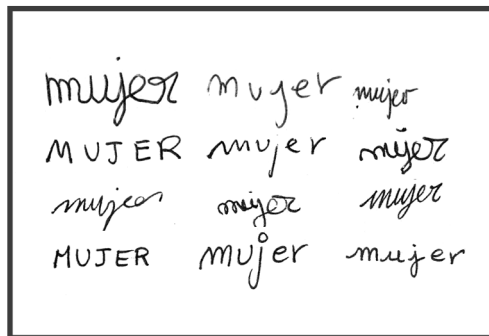 mujer mujer mujer
MUJER mujer mujer
mujer mujer mujer
MUJER mujer mujer